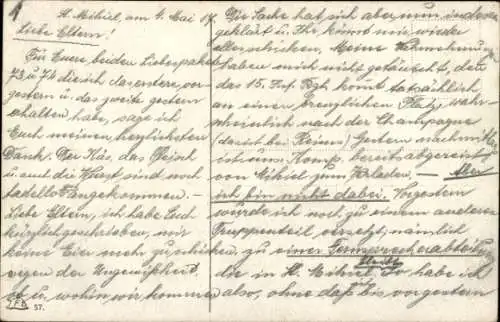 St. Mihiel, am 4. Mai 17.
Liebe Eltern!
Für Euere beiden Liebespakete
73 u. 74 die ich das erstere, vor-
gestern u. das zweite gestern
erhalten habe, sage ich
Euch meinen herzlichsten
Dank. Der Käs, das Fleisch
u. auch die Wurst sind noch
tadellos angekommen. –
Liebe Eltern, ich habe Euch
kürzlich geschrieben, mir
keine Eier mehr zu schicken
wegen der Ungewißheit.
ob u. wohin wir kommen
57.
Die Sache hat sich aber nun indes
geklärt u. Ihr könnt mir wieder
schicken. Meine
haben mich nicht getäuscht, denn
das 15. Inf. Rgt. kommt tatsächlich
an einen Platz, wahr-
scheinlich nach der Champagne
(dort ist bei Reims) Gestern nachmittag
ist uns. Komp. bereits abgereist
von Mihiel zum Verladen. – Aber
ich bin nicht dabei. Vorgestern
wurde ich noch zu einem anderen
Truppenteil versetzt, nämlich
zu einer Fernsprechabteilung
die in St. Mihiel So habe ich
also, ohne daß bis vorgestern